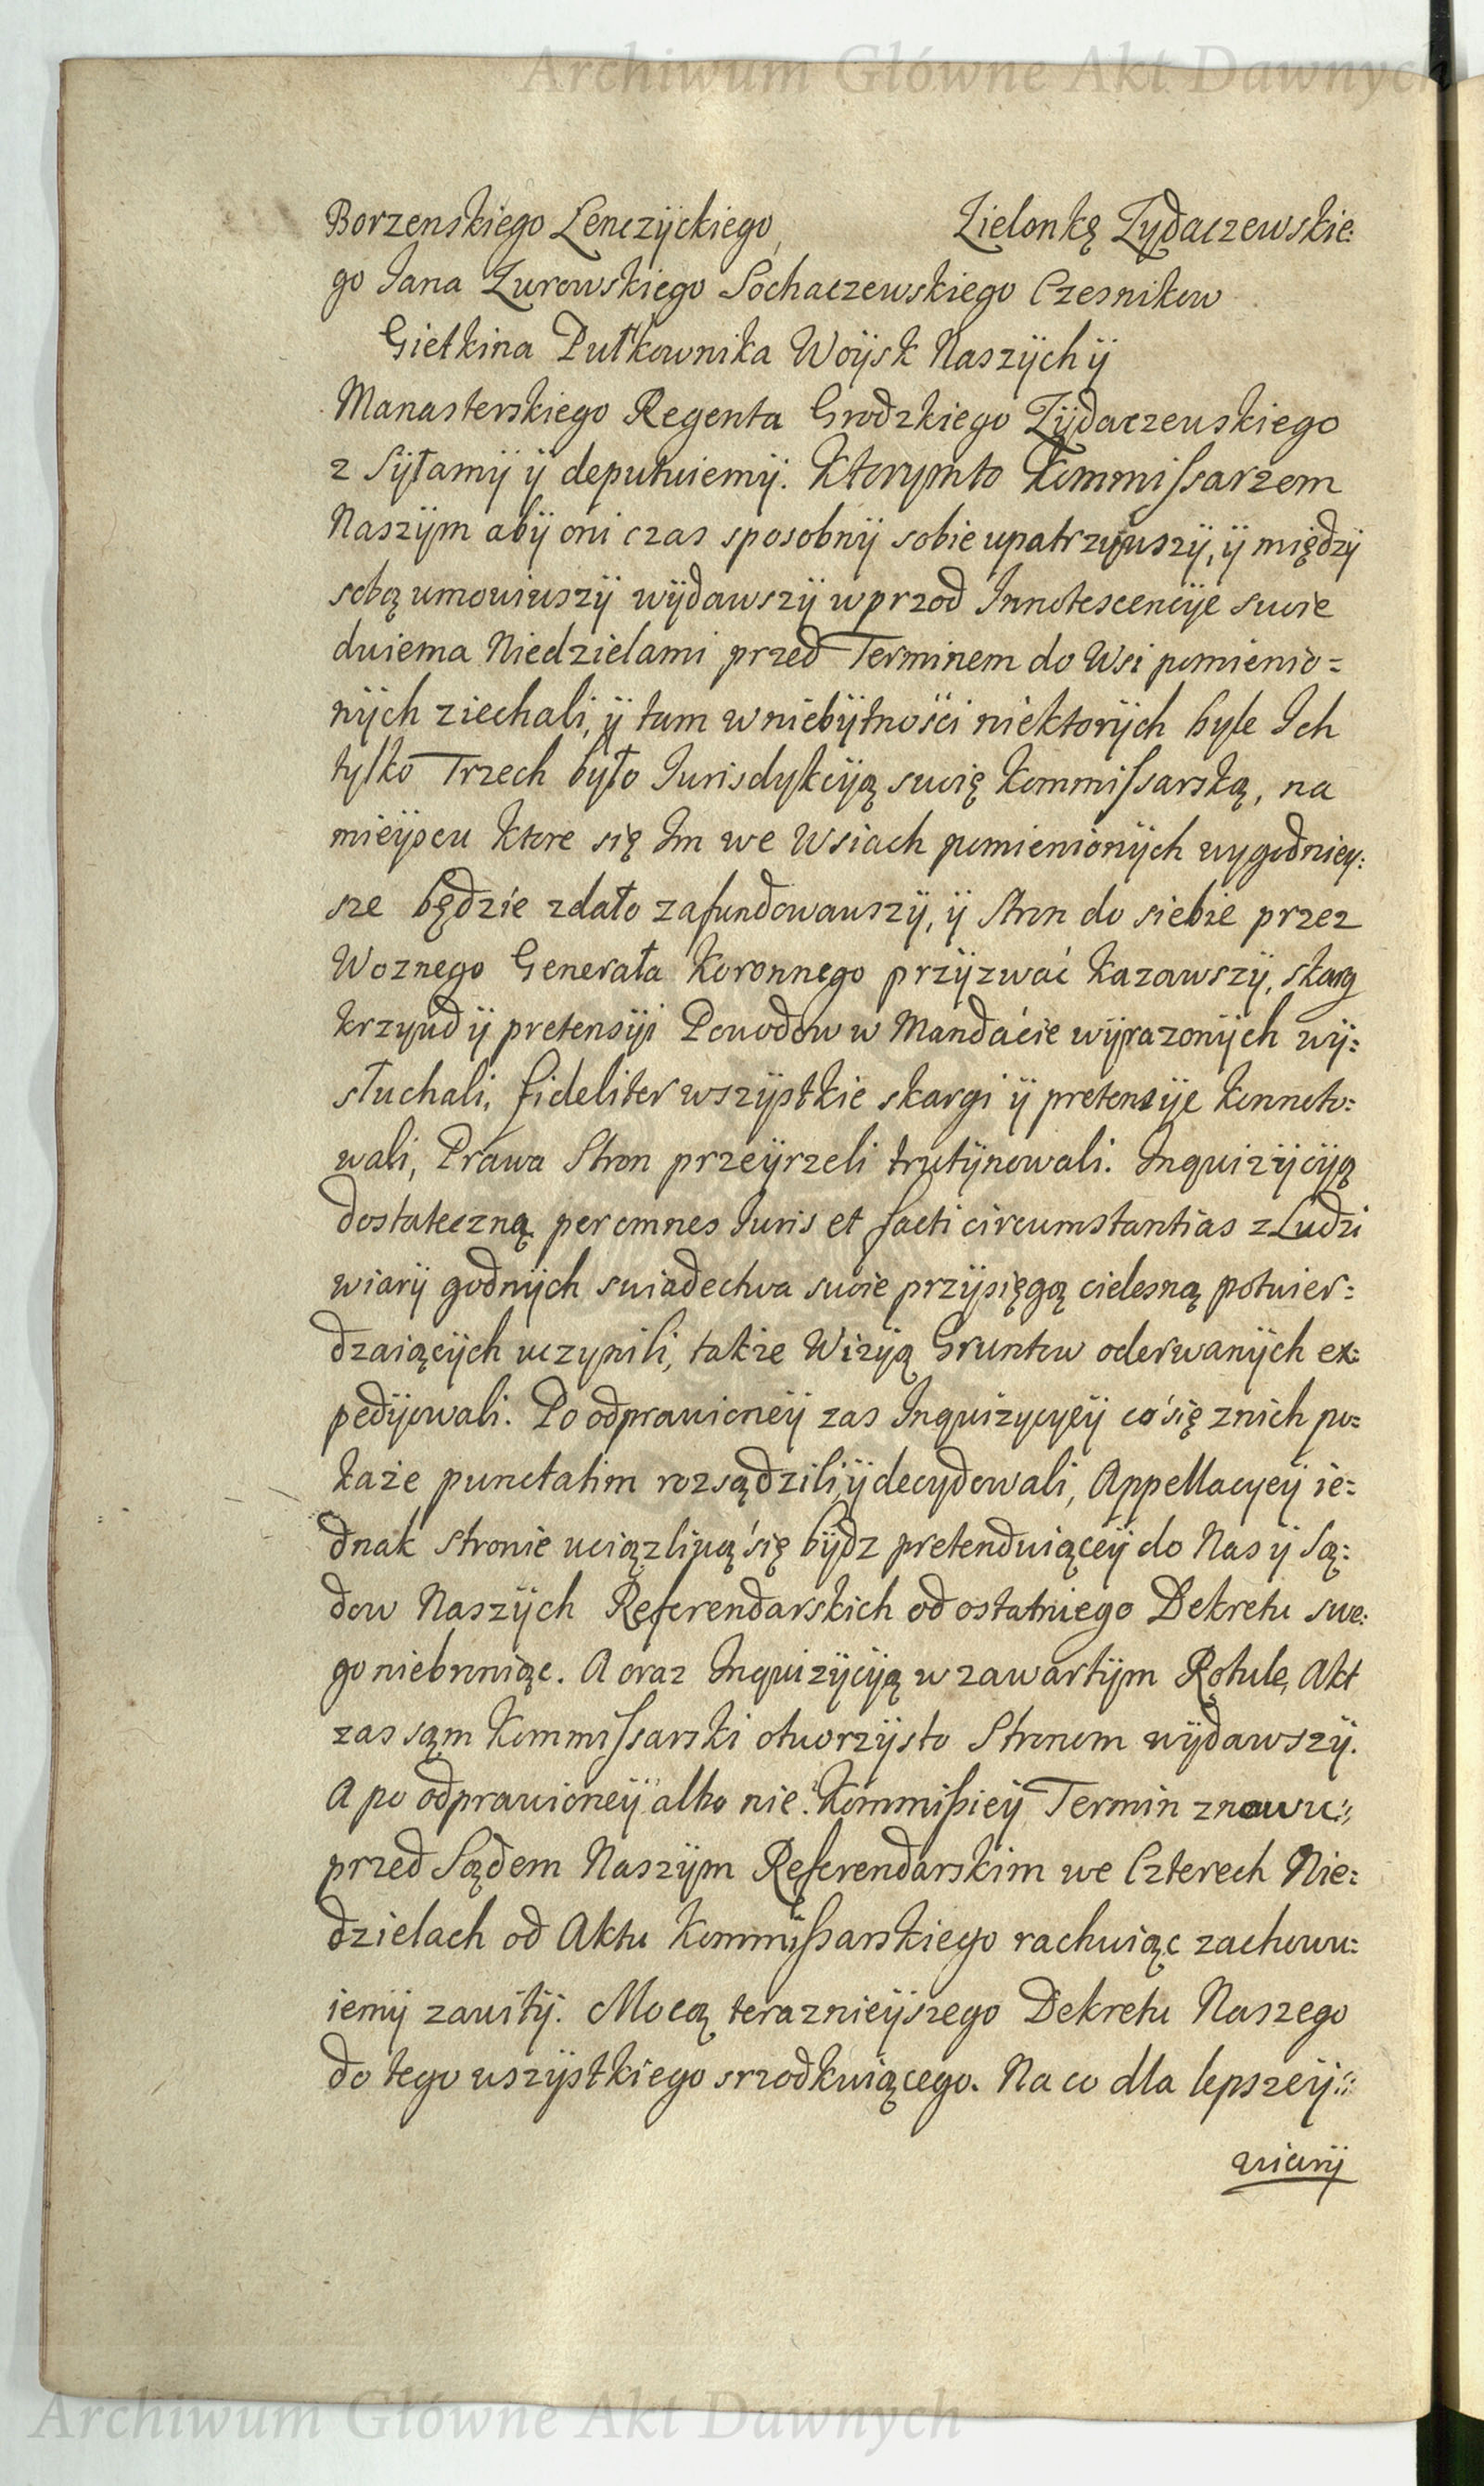 Archiwum Główne Akt Dawnych
Borzenskiego Lenczÿckiego, Zielonkę Zydaczewskie:
go Jana Zurowskiego Sochaczewskiego Czesnikow
Giełkina Pułkownika Woÿsk Naszÿch ÿ
Manasterskiego Regenta Grodzkiego Zÿdaczewskiego
z Sÿłamÿ ÿ deputuiemÿ. Ktorymto Kommissarzem
Naszÿm abÿ oni czas sposobnÿ sobie upatrzywszÿ, ÿ międzÿ
sobą umowiwszÿ wÿdawszÿ wprzod Innotescencÿe swoie
dwiema Niedzielami przed Terminem do Wsi pomienio=
nÿch ziechali, ÿ tam w niebÿtności niektorÿch byle Ich
tylko Trzech było Jurisdykcÿą swoię Kommissarską, na
mieÿscu ktore się Im we Wsiach pomienionÿch wygodniey:
sze będzie zdało zafundowawszÿ, ÿ Stron do siebie przez
Woznego Generała Koronnego przÿzwać kazawszÿ, skarg
krzywd ÿ pretensÿi Powodow w Mandacie wÿrazonÿch wÿ:
słuchali, fideliter wszÿstkie skargi ÿ pretensÿe konnoto:
wali, Prawa Stron przeÿrzeli trutÿnowali. Inquizÿcÿą
dostateczną per omnes Juris et facti circumstantias z Ludzi
wiarÿ godnÿch swiadectwa swoie przÿsięgą cielesną potwier:
dzaiącÿch uczynili, także Wizyą Gruntow oderwanÿch ex:
pedÿowali. Po odprawioneÿ zas Inquizycyeÿ co się z nich po=
każe punctatim rozsądzili, ÿ decydowali, Appellacyeÿ ie=
dnak stronie uciązliwą się bÿdz pretenduiąceÿ do Nas ÿ Są:
dow Naszÿch Referendarskich od ostatniego Dekretu swe:
go niebroniąc. A oraz Inquizÿcÿą w zawartÿm Rotule, Akt
zas sąm Kommissarski otworzÿsto Stronom wÿdawszÿ.
A po odprawioneÿ albo nie Kommissieÿ Termin znowu
przed Sądem Naszÿm Referendarskim we Czterech Nie:
dzielach od Aktu Kommissarskiego rachuiąc zachowu:
iemÿ zawitÿ. Mocą teraznieÿszego Dekretu Naszego
do tego wszÿstkiego srzodkuiącego. Na co dla lepszeÿ
wiarÿ
Archiwum Główne Akt Dawnych